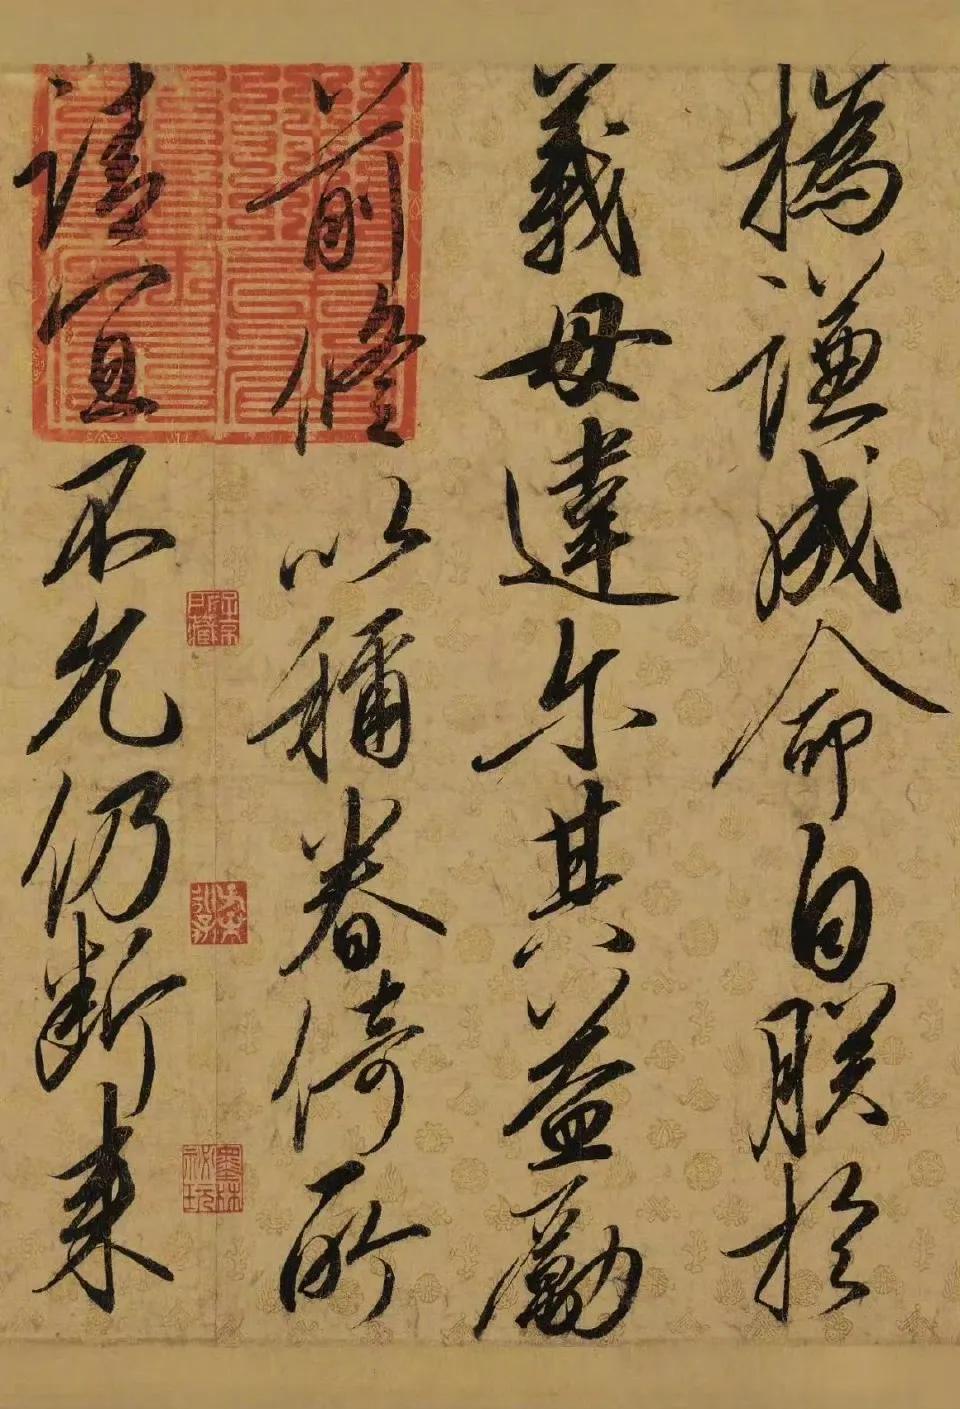 撝谦成命自朕於
義毋違尔其益勵
前修以稱眷倚所
請宜不允仍断来